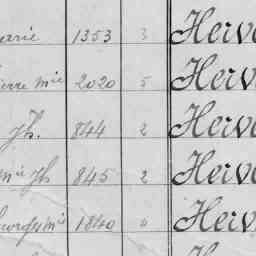 arie 1353 3 Herv
ierre Mie 2020 5 Herv
Jh. 844 2 Herv
Mie Jh 845 2 Herv
1840 " Herv